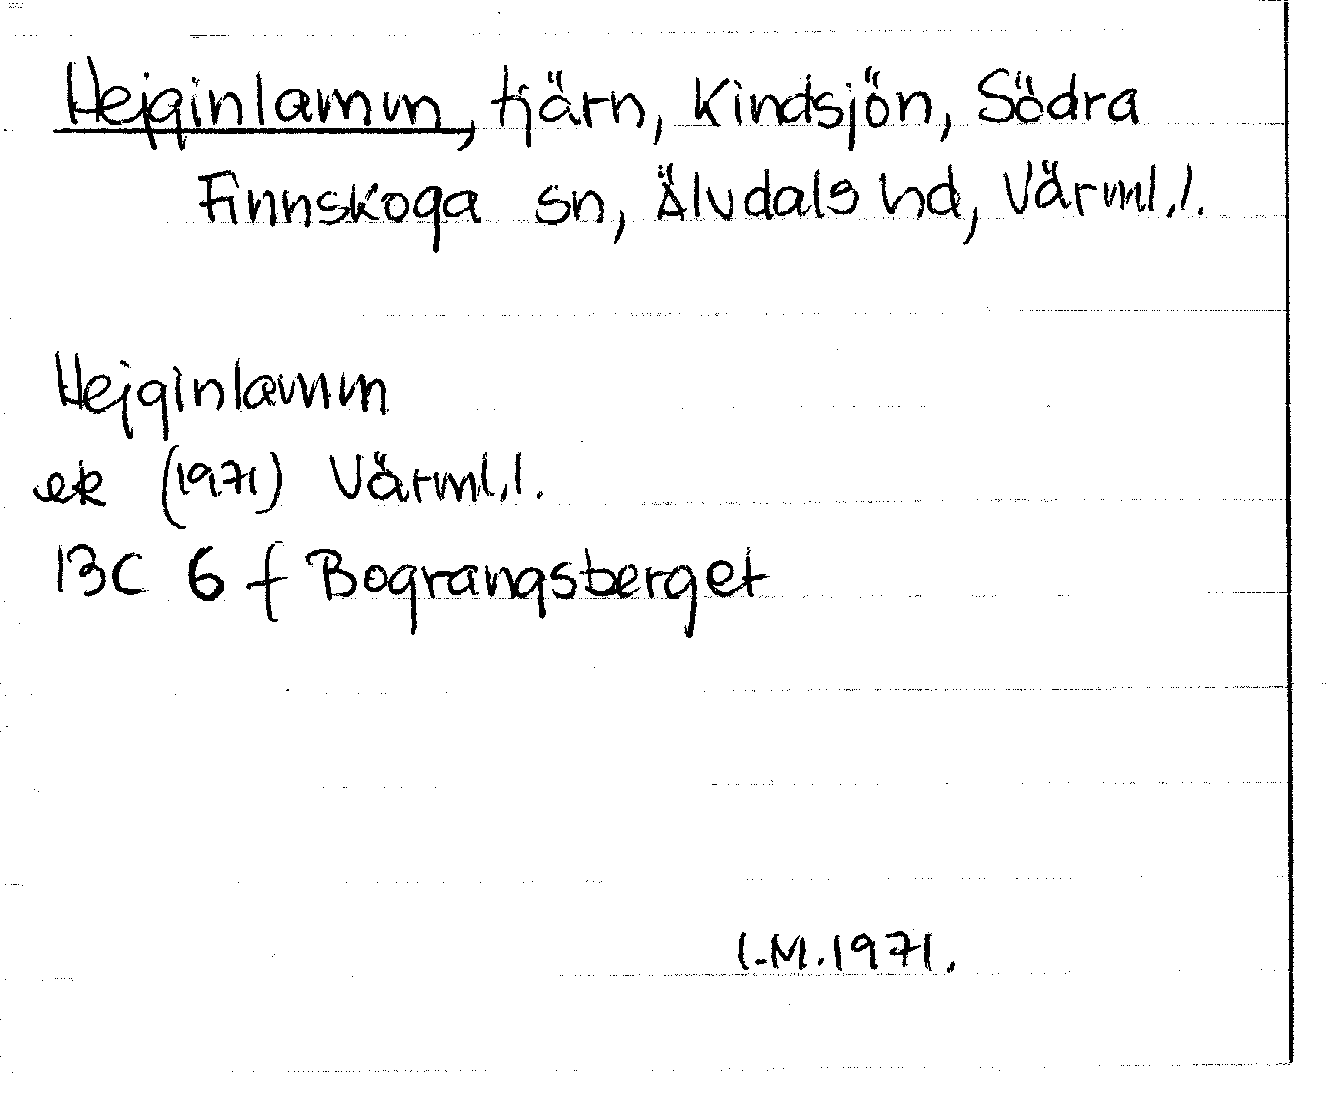 Hejginlamm, tjärn, Kindsjön, Södra
Finnskoga sn, Älvdals hd, Värml.l.
Hejginlamm
ek (1971) Värml.l.
13C 6 f Bograngsberget
L-M.1971.